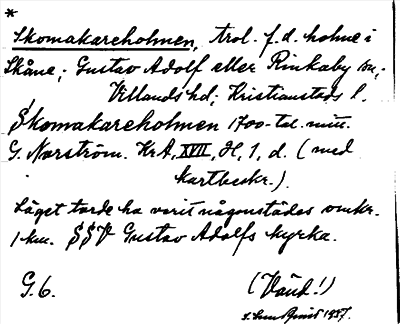 *
Skomakareholmen, trol. f.d. holme i
Skåne; Gustav Adolf eller Rinkaby sn,
Villands hd; Kristianstads l.
Skomakareholmen 1700-tal. mitt.
G. Norström. KrA, XVII, H, 1, d. (med
kartbeskr.).
Läget torde ha varit någonstädes omkr.
1 km. SSV Gustav Adolfs kyrka.
G. 6.
(Vänd!)
1937.